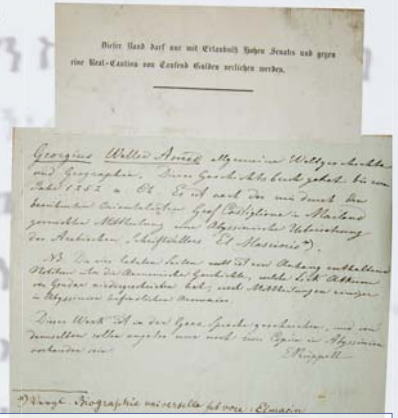 Dieser Band darf nur mit Erlaubniß Hohen Senats und gegen
eine Real-Caution von Tausend Gulden verliehen werden.
Georgius Walled Amed Allgemeine Weltgeschichte
und Geographie. Dieses Geschichtsbuch gehet bis zum
Jahr 1252 n. Ch. Es ist nach der mir durch den
berühmten Orientalisten Graf Castiglione in Mailand
gemachten Mittheilung eine Abyssinische Uebersetzung
des Arabischen Schriftstellers El Macinio *).
NB. Die letzten Seiten enthaltene
Notizen über die Geschichte, welche Lik Atkum
von Gondar niedergeschrieben hat, nach Mittheilungen einiger
in Abyssinien befindlichen Armenier.
Dieses Werk ist in der Geez Sprache geschrieben, und von
demselben sollen nur noch eine Copie in Abyssinien
vorhanden sein.
Rüppell
*) Vergl. Biographie universelle sub voce: Elmacin